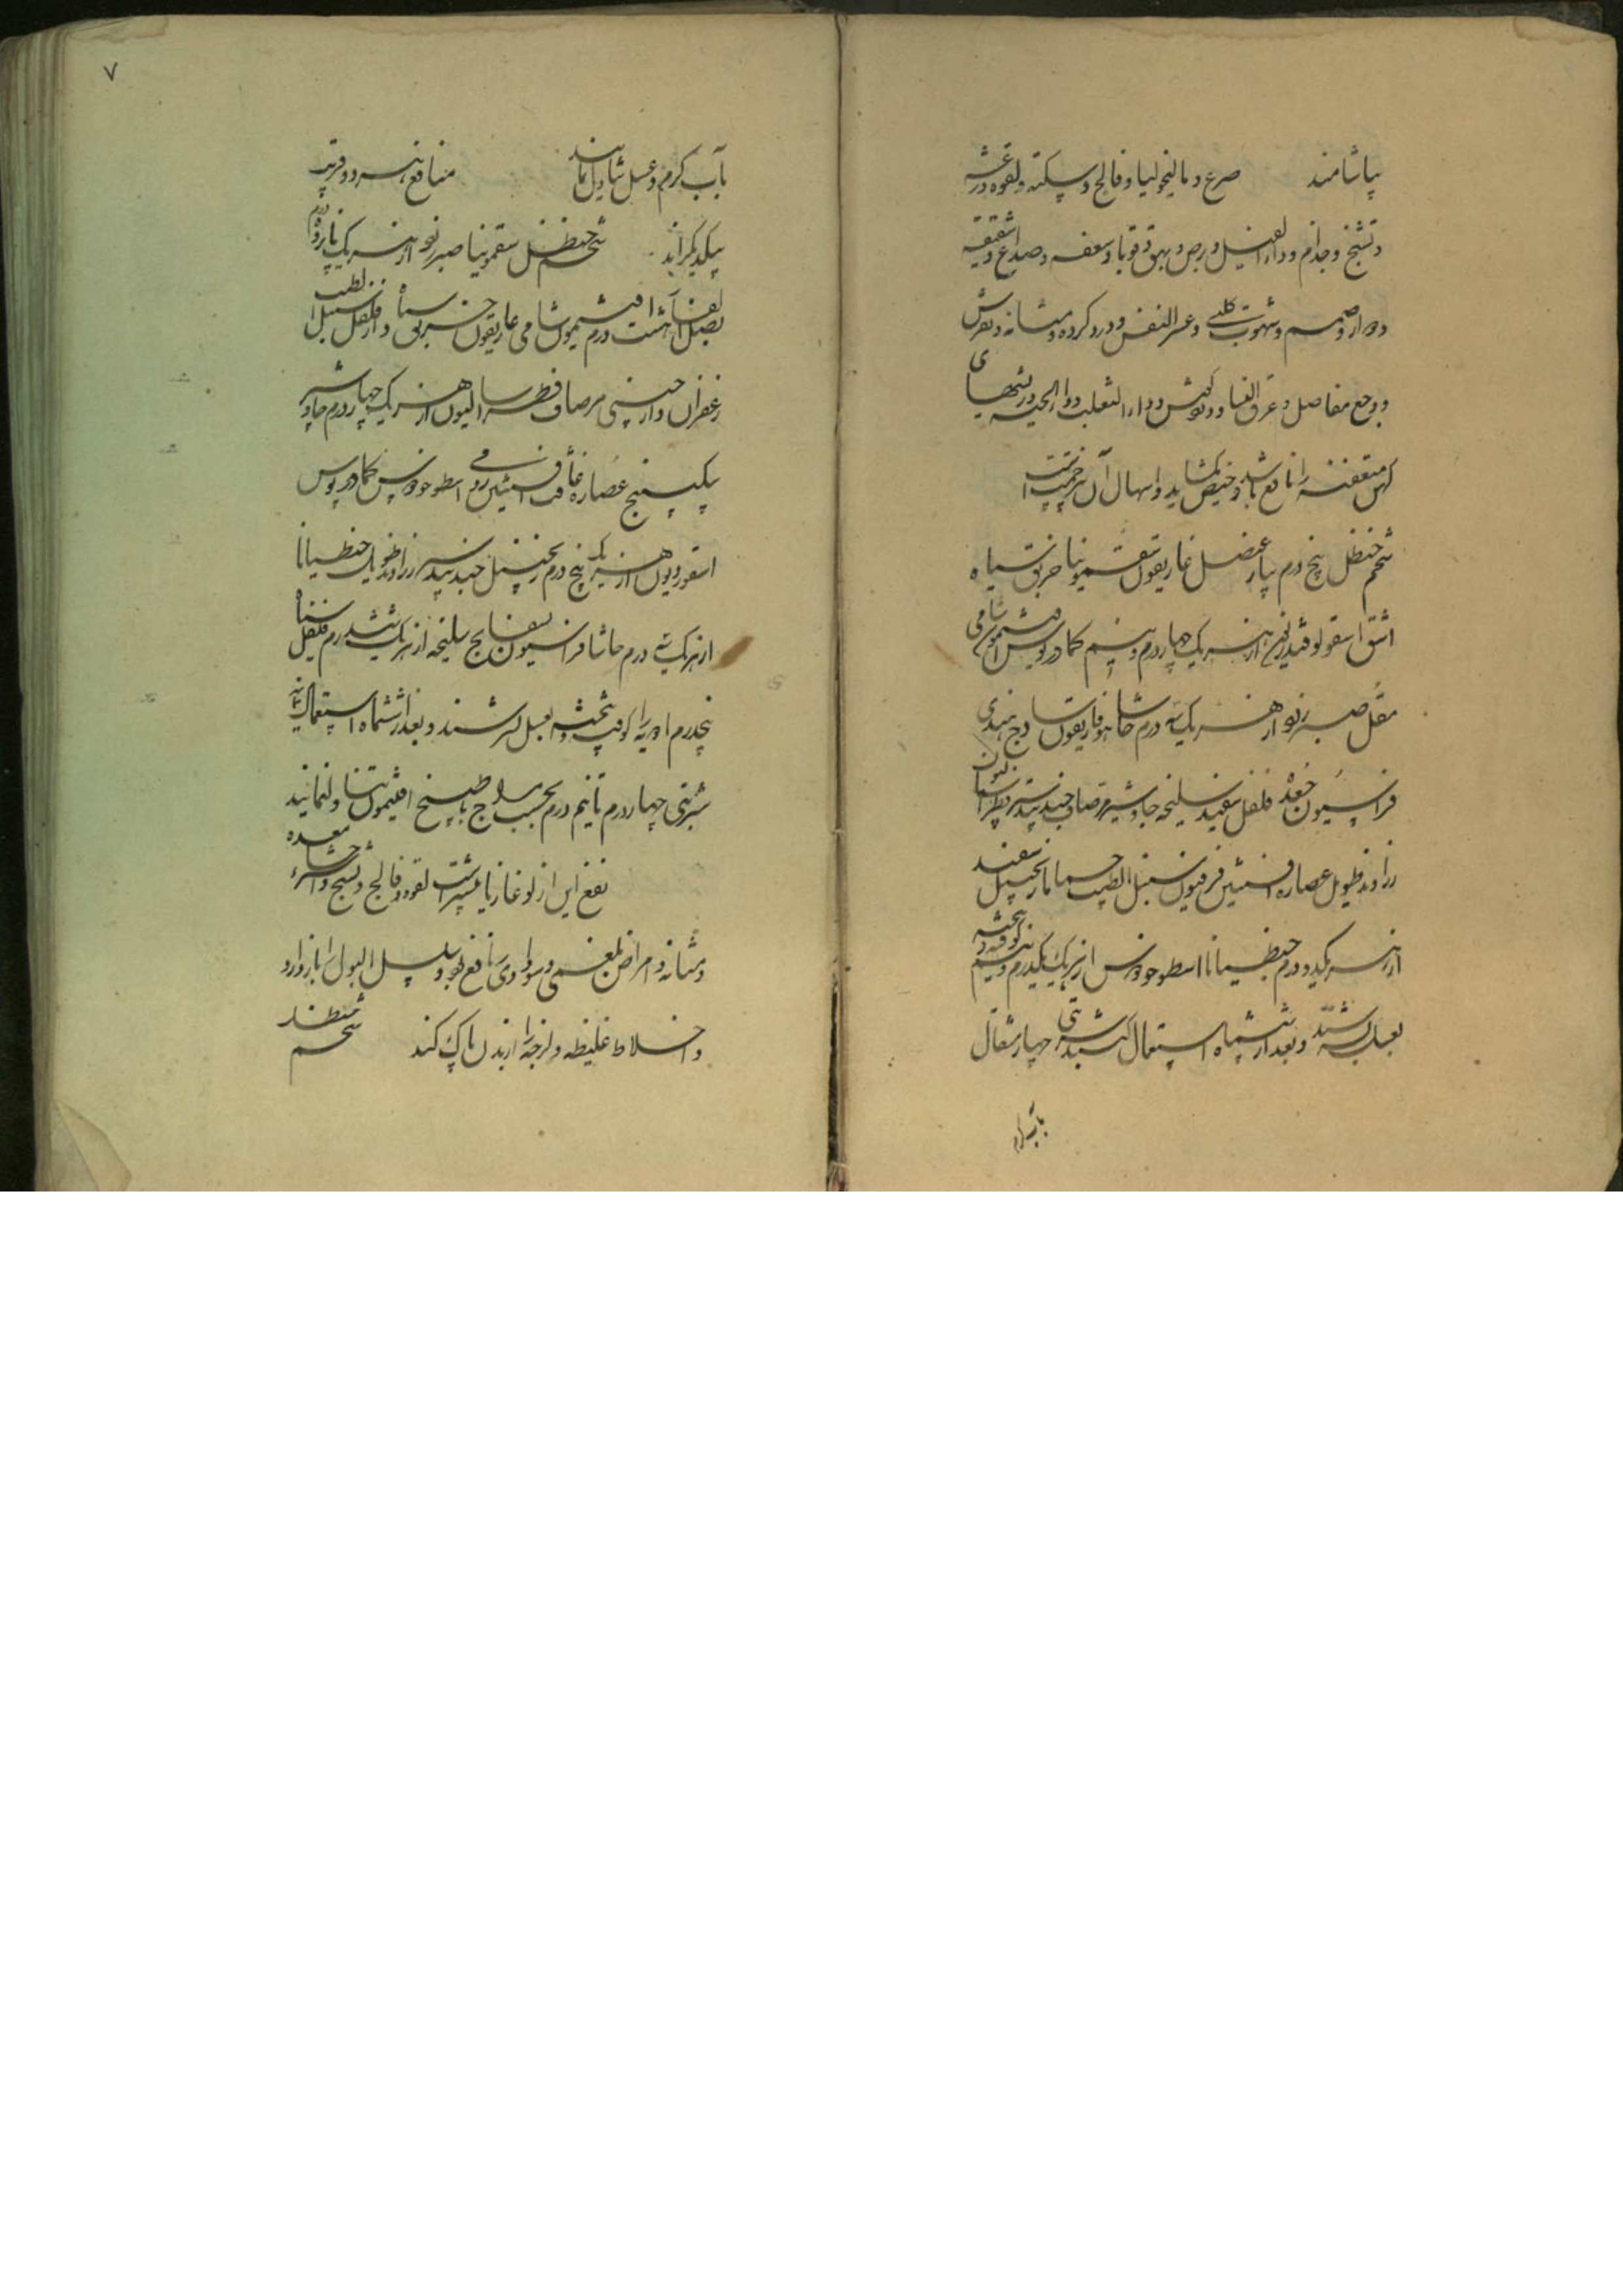 بیاشامند صرع و مالیخولیا و فالج و سکته و لقوه و رعشه
و تشنج و جذام و داء الفیل و برص و بهق و قوبا و سعفه و صداع و شقیقه
و دوار و صمم و شهوت کلبی و عسر النفس و درد کرده و مثانه و نقرس
و وجع مفاصل و عرق النسا و درد کوش و داء الثعلب و داء الحیه و ریشهای
کهن متعفنه را نافع باشد و حیض بکشاید و اسهال آن بی زحمتست
شحم حنظل پنج درم پیاز عنصل غاریقون سقمونیا خربق سیاه
اشق اسقولوقندریون از هر یک چهار درم و نیم کمادریوس افتیمون شامی
مقل صبر زنو از هر یک سه درم حاشا هوفاریقون سادج هندی
فراسیون جعده فلفل سفید سلیخه جاوشیر مرصاف جندبیدستر فطراسالیون
زراوند طویل عصاره افسنتین فرفیون سنبل الطیب حماما زنجبیل سفید
از هر یک دو درم جنطیانا اسطوخودوس از هر یک یکدرم و نیم کوفته و بیخته
بعسل بسرشند و بعد از ششماه استعمال کنند شربتی چهار مثقال
بآب کرم
۷
بآب کرم و عسل تناول نمایند منافع هر دو قریب
بیکدیکراند شحم حنظل سقمونیا صبر زنو از هر یک پانزده درم
بصل الفار هشت درم افتیمون شامی غاریقون خربق سیاه دارفلفل سنبل الطیب
زعفران دارچینی مرصاف فطراسالیون از هر یک چهار درم جاوشیر
سکبینج عصاره غافث افسنتین رومی اسطوخودوس کمادریوس
اسقوردیون از هر یک پنج درم زنجبیل جندبیدستر زراوند طویل جنطیانا
از هر یک سه درم حاشا فراسیون بسفایج سلیخه از هر یک شش درم فلفل سیاه
پنجدرم ادویه را کوفته و بیخته بعسل بسرشند و بعد از ششماه استعمال نمایند
شربتی چهار درم تا نیم درم بحسب مزاج با طبیخ افتیمون تناول نمایند
نفع این از لوغازیا بیشترست لقوه و فالج و تشنج و استرخاء معده
و مثانه و امراض بلغمی و سوداوی را نافع بود و سلس البول را باز دارد
و اخلاط غلیظه و لزجه را از بدن پاک کند شحم حنظل